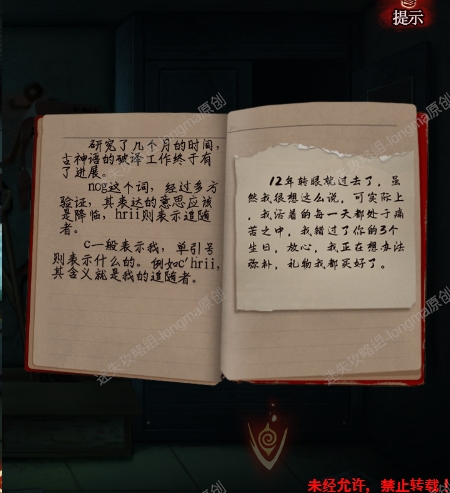 提示
研究了几个月的时间，
古神语的破译工作终于有
了进展。
nog这个词，经过多方
验证，其表达的意思应该
是降临，hrii则表示追随
者。
c一般表示我，单引号
则表示什么的。例如c'hrii，
其含义就是我的追随者。
12年转眼就过去了，虽
然我很想这么说，可实际上
，我活着的每一天都处于痛
苦之中，我错过了你的3个
生日，放心，我正在想办法
弥补，礼物我都买好了。
迷失攻略组-longma原创
未经允许，禁止转载！